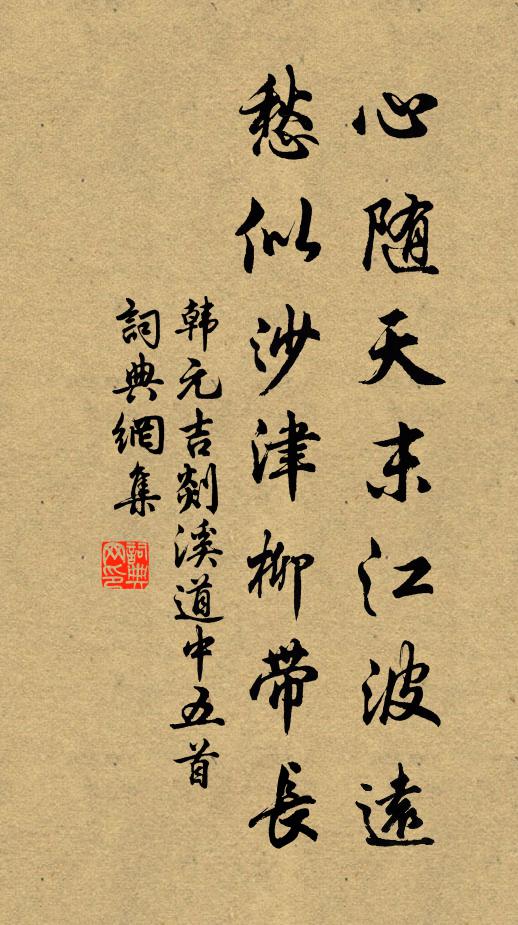 心随天末江波遠
愁似沙津柳带長
韩元吉剡溪道中五首
詞典網集
詞典网印